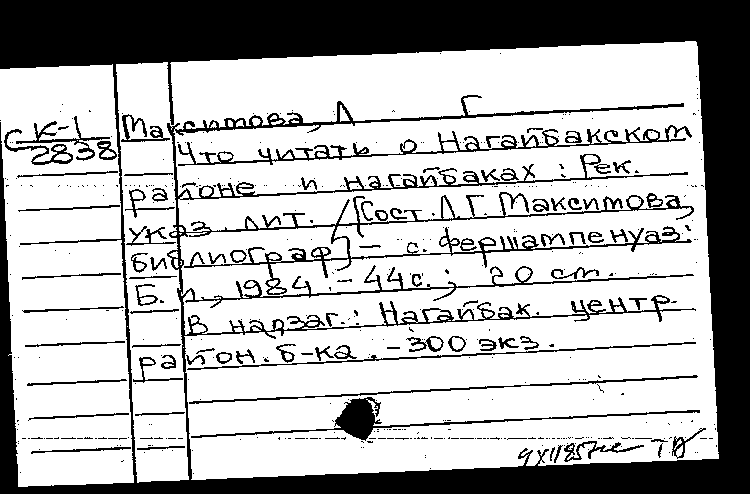 СК-1
2838
Максимова, Л Г
Что читать о Нагайбакском
районе и нагайбаках : Рек.
указ. лит. / [Сост. Л. Г. Максимова,
библиограф] - с. Фершампенуаз:
Б. и., 1984. - 44 с. ; 20 cm.
В надзаг.: Нагайбак. центр.
район. б-ка. - 300 экз.